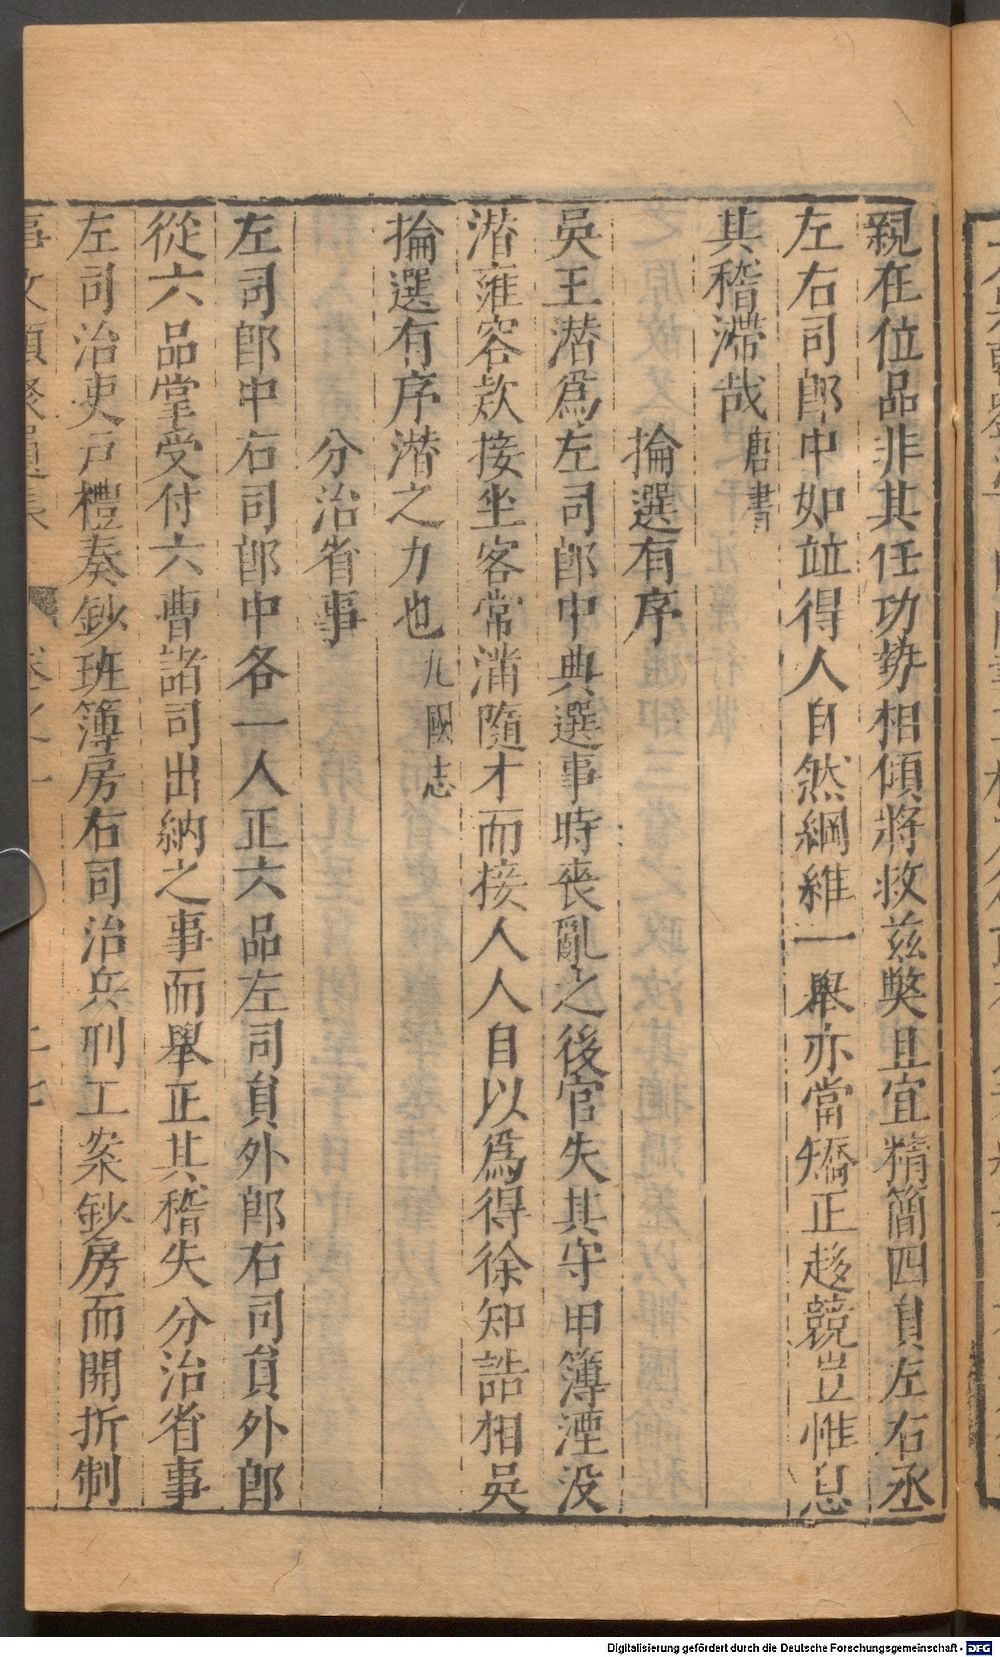 親在位品非其任功勢相傾將救兹獘且宜精簡四員左右丞
左右司郎中如並得人自然綱維一舉亦當矯正趍競豈惟息
其稽滯哉唐書
掄選有序
吳王潛爲左司郎中典選事時喪亂之後官失其守甲簿湮没
潛雍容欵接坐客常滿隨才而接人人自以爲得徐知誥相吳
掄選有序潛之力也九國志
分治省事
左司郎中右司郎中各一人正六品左司員外郎右司員外郎
從六品掌受付六曹諸司出納之事而舉正其稽失分治省事
左司治吏戸禮奏鈔班簿房右司治兵刑工案鈔房而開折制
Digitalisierung gefördert durch die Deutsche Forschungsgemeinschaft - DFG